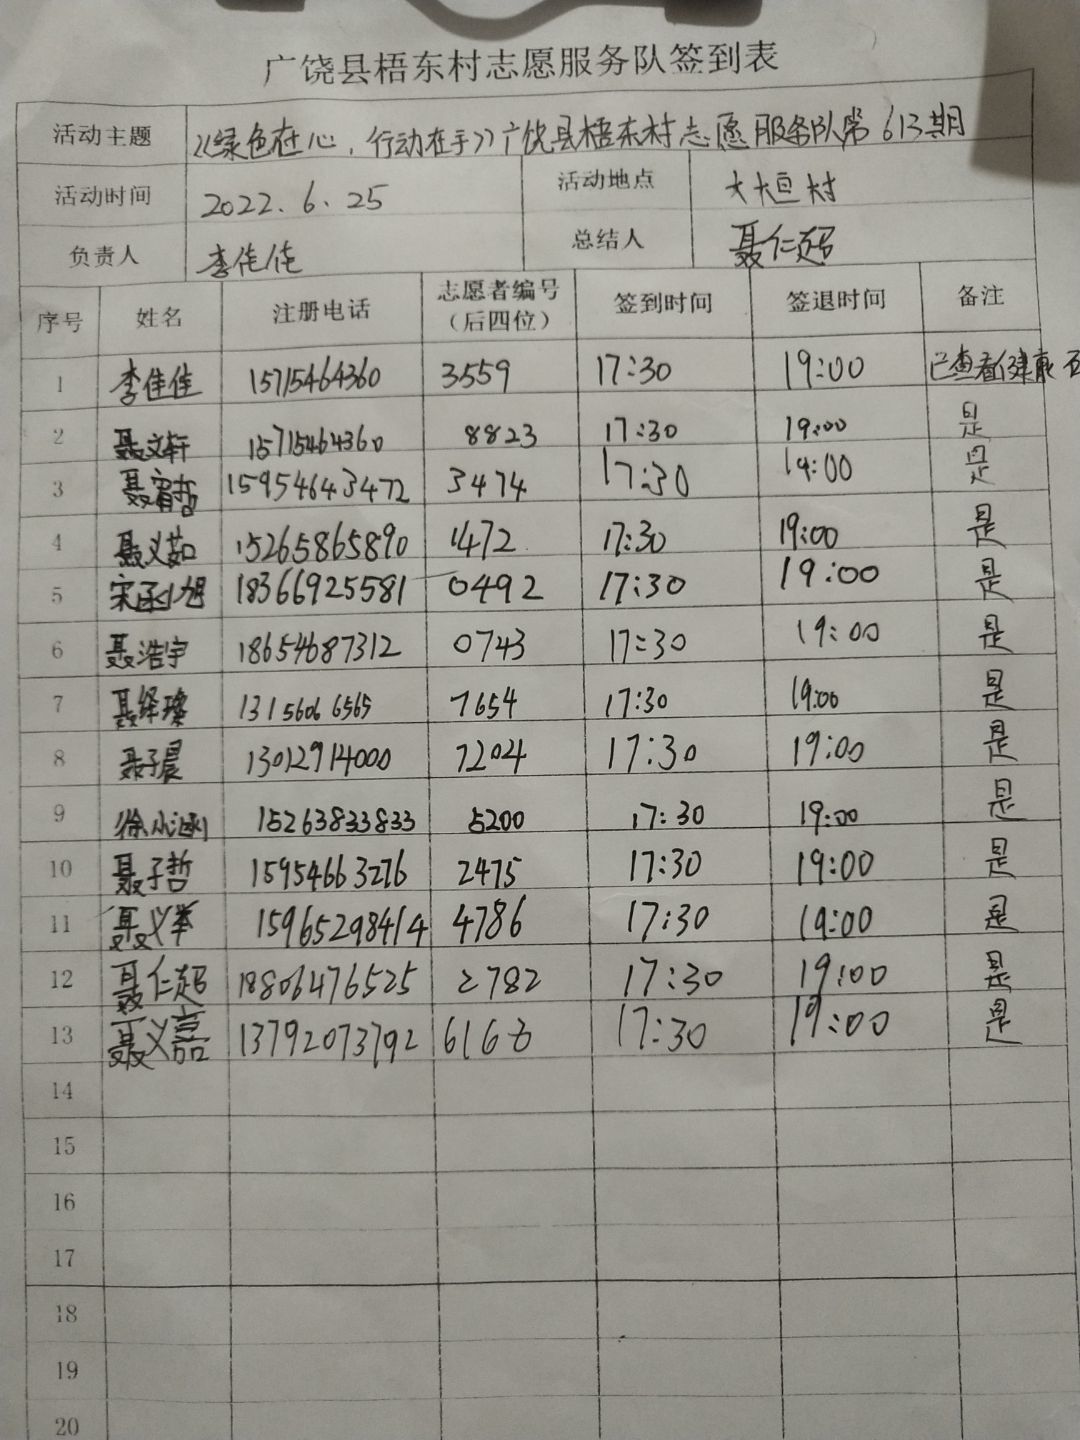 广饶县梧东村志愿服务队签到表
活动主题 《绿色在心，行动在手》广饶县梧东村志愿服务队第613期
活动时间 2022.6.25 活动地点 大桓村
负责人 李佳佳 总结人 聂仁超
序号 姓名 注册电话 志愿者编号（后四位） 签到时间 签退时间 备注
1 李佳佳 15715464360 3559 17:30 19:00 已查看健康
2 聂文轩 15715464360 8823 17:30 19:00 是
3 聂宥哲 15954643472 3474 17:30 19:00 是
4 聂义茹 15265865890 1472 17:30 19:00 是
5 宋函旭 18366925581 0492 17:30 19:00 是
6 聂浩宇 18654687312 0743 17:30 19:00 是
7 聂绎璨 13156066565 7654 17:30 19:00 是
8 聂子晨 13012914000 7204 17:30 19:00 是
9 徐小涵 15263833833 5200 17:30 19:00 是
10 聂子哲 15954663276 2475 17:30 19:00 是
11 聂义举 15965298414 4786 17:30 19:00 是
12 聂仁超 18806476525 2782 17:30 19:00 是
13 聂义嘉 13792073792 6166 17:30 19:00 是
14
15
16
17
18
19
20